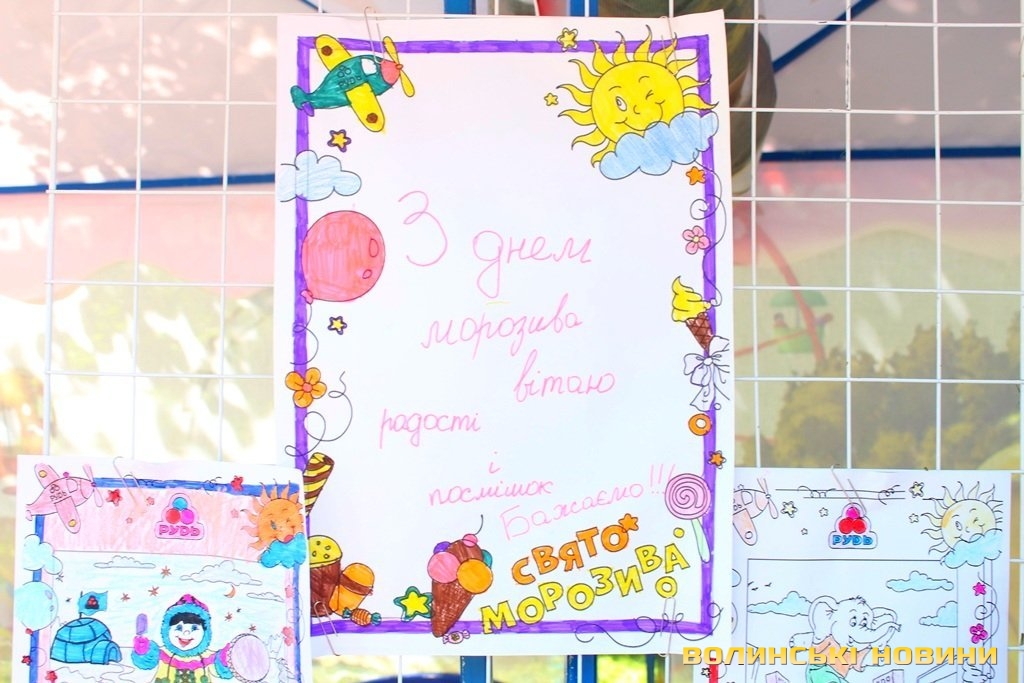 З днем
морозива
вітаю
радості
і
посмішок
Бажаємо!!!
СВЯТО
МОРОЗИВА
РУДЬ
РУДЬ
РУДЬ
ВОЛИНСЬКІ НОВИНИ